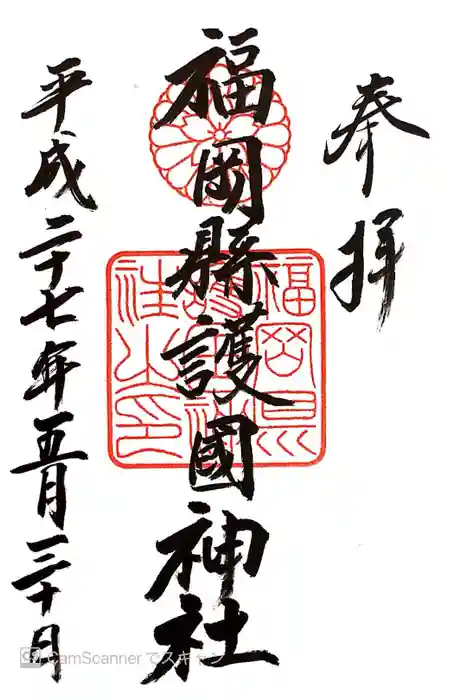 奉拝
福岡縣護國神社
平成二十七年五月三十日
福岡県護国神社之印
CamScanner でスキャン